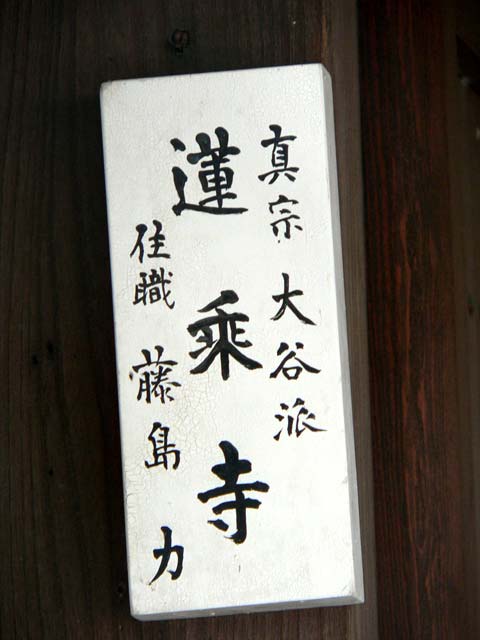 真宗 大谷派
蓮乗寺
住職 藤島 力